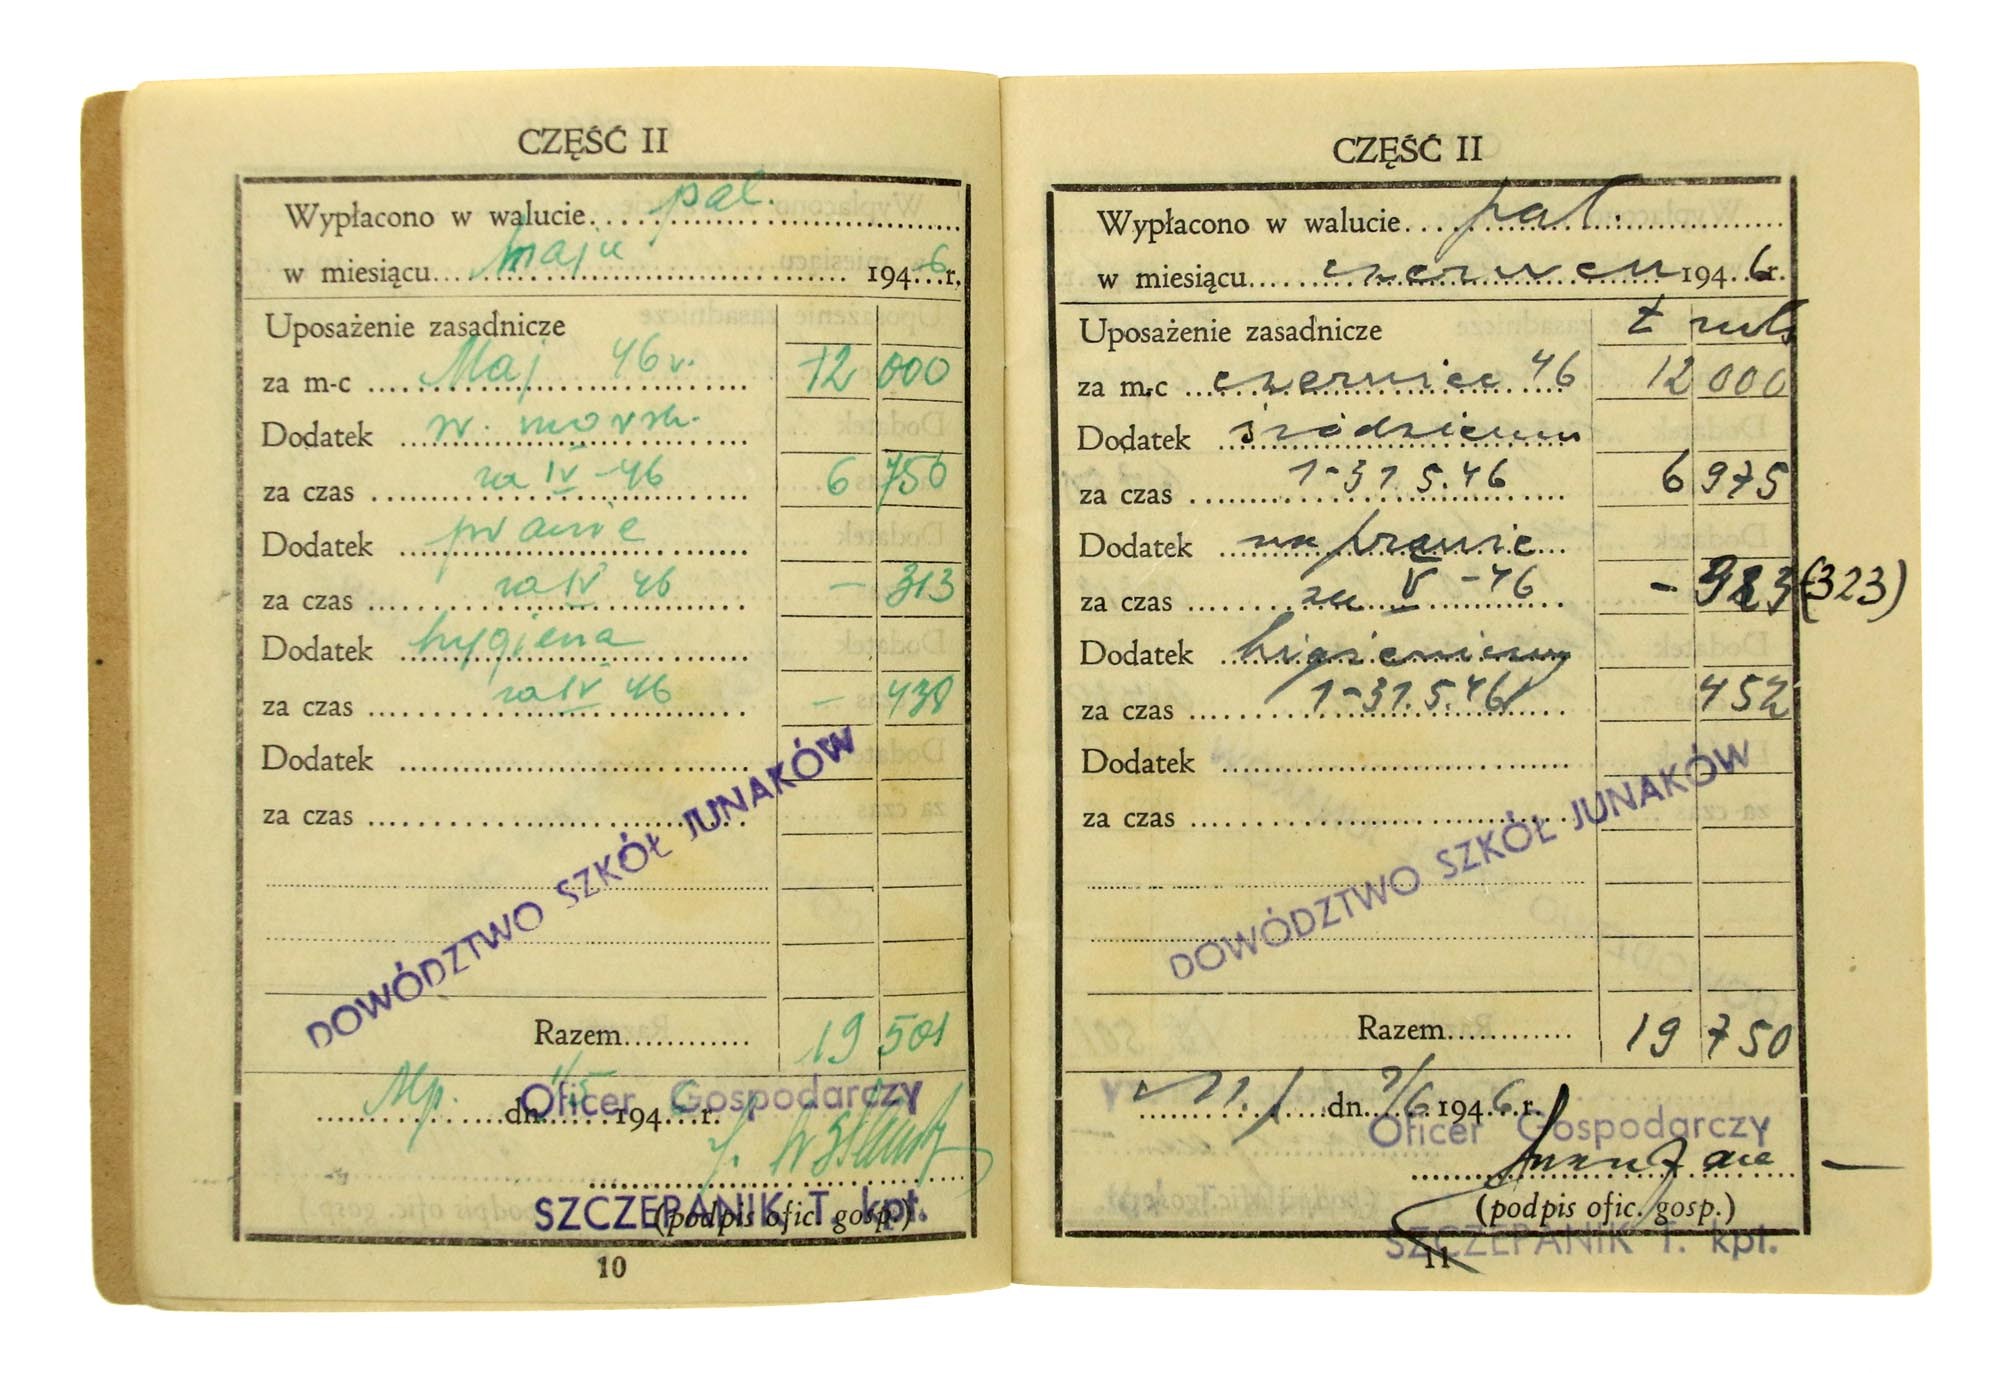 CZĘŚĆ II
Wypłacono w walucie pal.
w miesiącu maju 1946 r.
Uposażenie zasadnicze
za m-c Maj 46 r. 12 000
Dodatek w. morsk.
za czas za IV - 46 6 750
Dodatek pranie
za czas za IV 46 - 313
Dodatek hygiena
za czas za IV 46 - 438
Dodatek
za czas
DOWÓDZTWO SZKÓŁ JUNAKÓW
Razem 19 501
Mp. dn. 1/5 1946 r.
Oficer Gospodarczy
SZCZEPANIK T. kpt.
(podpis ofic. gosp.)
10
CZĘŚĆ II
Wypłacono w walucie pal.
w miesiącu czerwcu 1946 r.
Uposażenie zasadnicze £ mls
za m-c czerwiec 46 12 000
Dodatek
za czas 1-31.5.46 6 975
Dodatek na pranie
za czas za V - 46 - 323 (323)
Dodatek higieniczny
za czas 1-31.5.46 452
Dodatek
za czas
DOWÓDZTWO SZKÓŁ JUNAKÓW
Razem 19 750
dn. 1946 r.
Oficer Gospodarczy
(podpis ofic. gosp.)
SZCZEPANIK T. kpt.
11